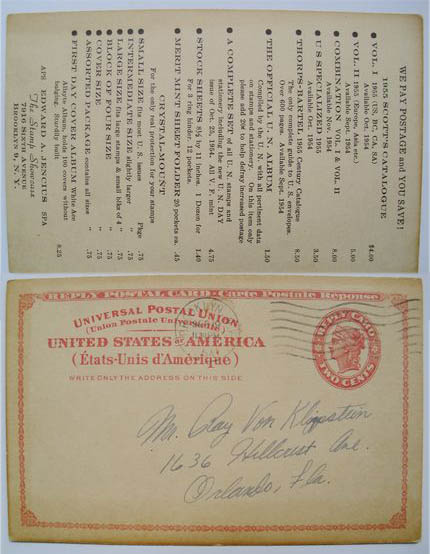 WE PAY POSTAGE and YOU SAVE!
1955 SCOTT'S CATALOGUE
● VOL. I 1955 (US, BC, CA, SA) $4.00
Available Sept. 1954
● VOL. II 1955 (Europe, Asia etc.) 5.00
Available Sept. 1954
● COMBINATION VOL. I & VOL. II 8.00
Available Nov. 1954
● U S SPECIALIZED 1955 3.50
Available Oct. 1954
● THORPS-BARTEL 1955 Century Catalogue
The only complete guide to U. S. envelopes.
Over 600 pages. Available Sept. 1954 8.50
● THE OFFICIAL U. N. ALBUM 1.50
Compiled by the U. N. with all pertinent data
on stamps and stationery. On this item only
please add 25c to help defray increased postage
● A COMPLETE SET of all U. N. stamps and
stationery including the new U. N. DAY
issue of Oct. 25, 1954. F. mint 4.75
● STOCK SHEETS 8½ by 11 inches. 1 Dozen for
For 3 ring binder 12 pockets. 1.40
● MERIT MINT SHEET FOLDER 25 pockets ea. .45
CRYSTAL-MOUNT
For the only real protection for your stamps
● SMALL SIZE (fits most U. S. issues) Pkge .75
● INTERMEDIATE SIZE slightly larger " .75
● LARGE SIZE (fits large stamps & small blks of 4 " .75
● BLOCK OF FOUR SIZE " .75
● COVER SIZE " .75
● ASSORTED PACKAGE contains all sizes " .75
● FIRST DAY COVER ALBUM White Ace
Allsyte Album, holds 100 covers without
hinging. Sturdy 8.25
APS EDWARD A. JENCIUS SPA
The Stamp Showcase
7916 SIXTH AVENUE
BROOKLYN 9, N. Y.
REPLY POSTAL CARD - Carte Postale Réponse
UNIVERSAL POSTAL UNION
(Union Postale Universelle)
UNITED STATES of AMERICA
(États-Unis d'Amérique)
WRITE ONLY THE ADDRESS ON THIS SIDE
REPLY CARD
TWO CENTS
Mr. Ray Von Klippstein
1636 Hillcrest Ave.
Orlando, Fla.